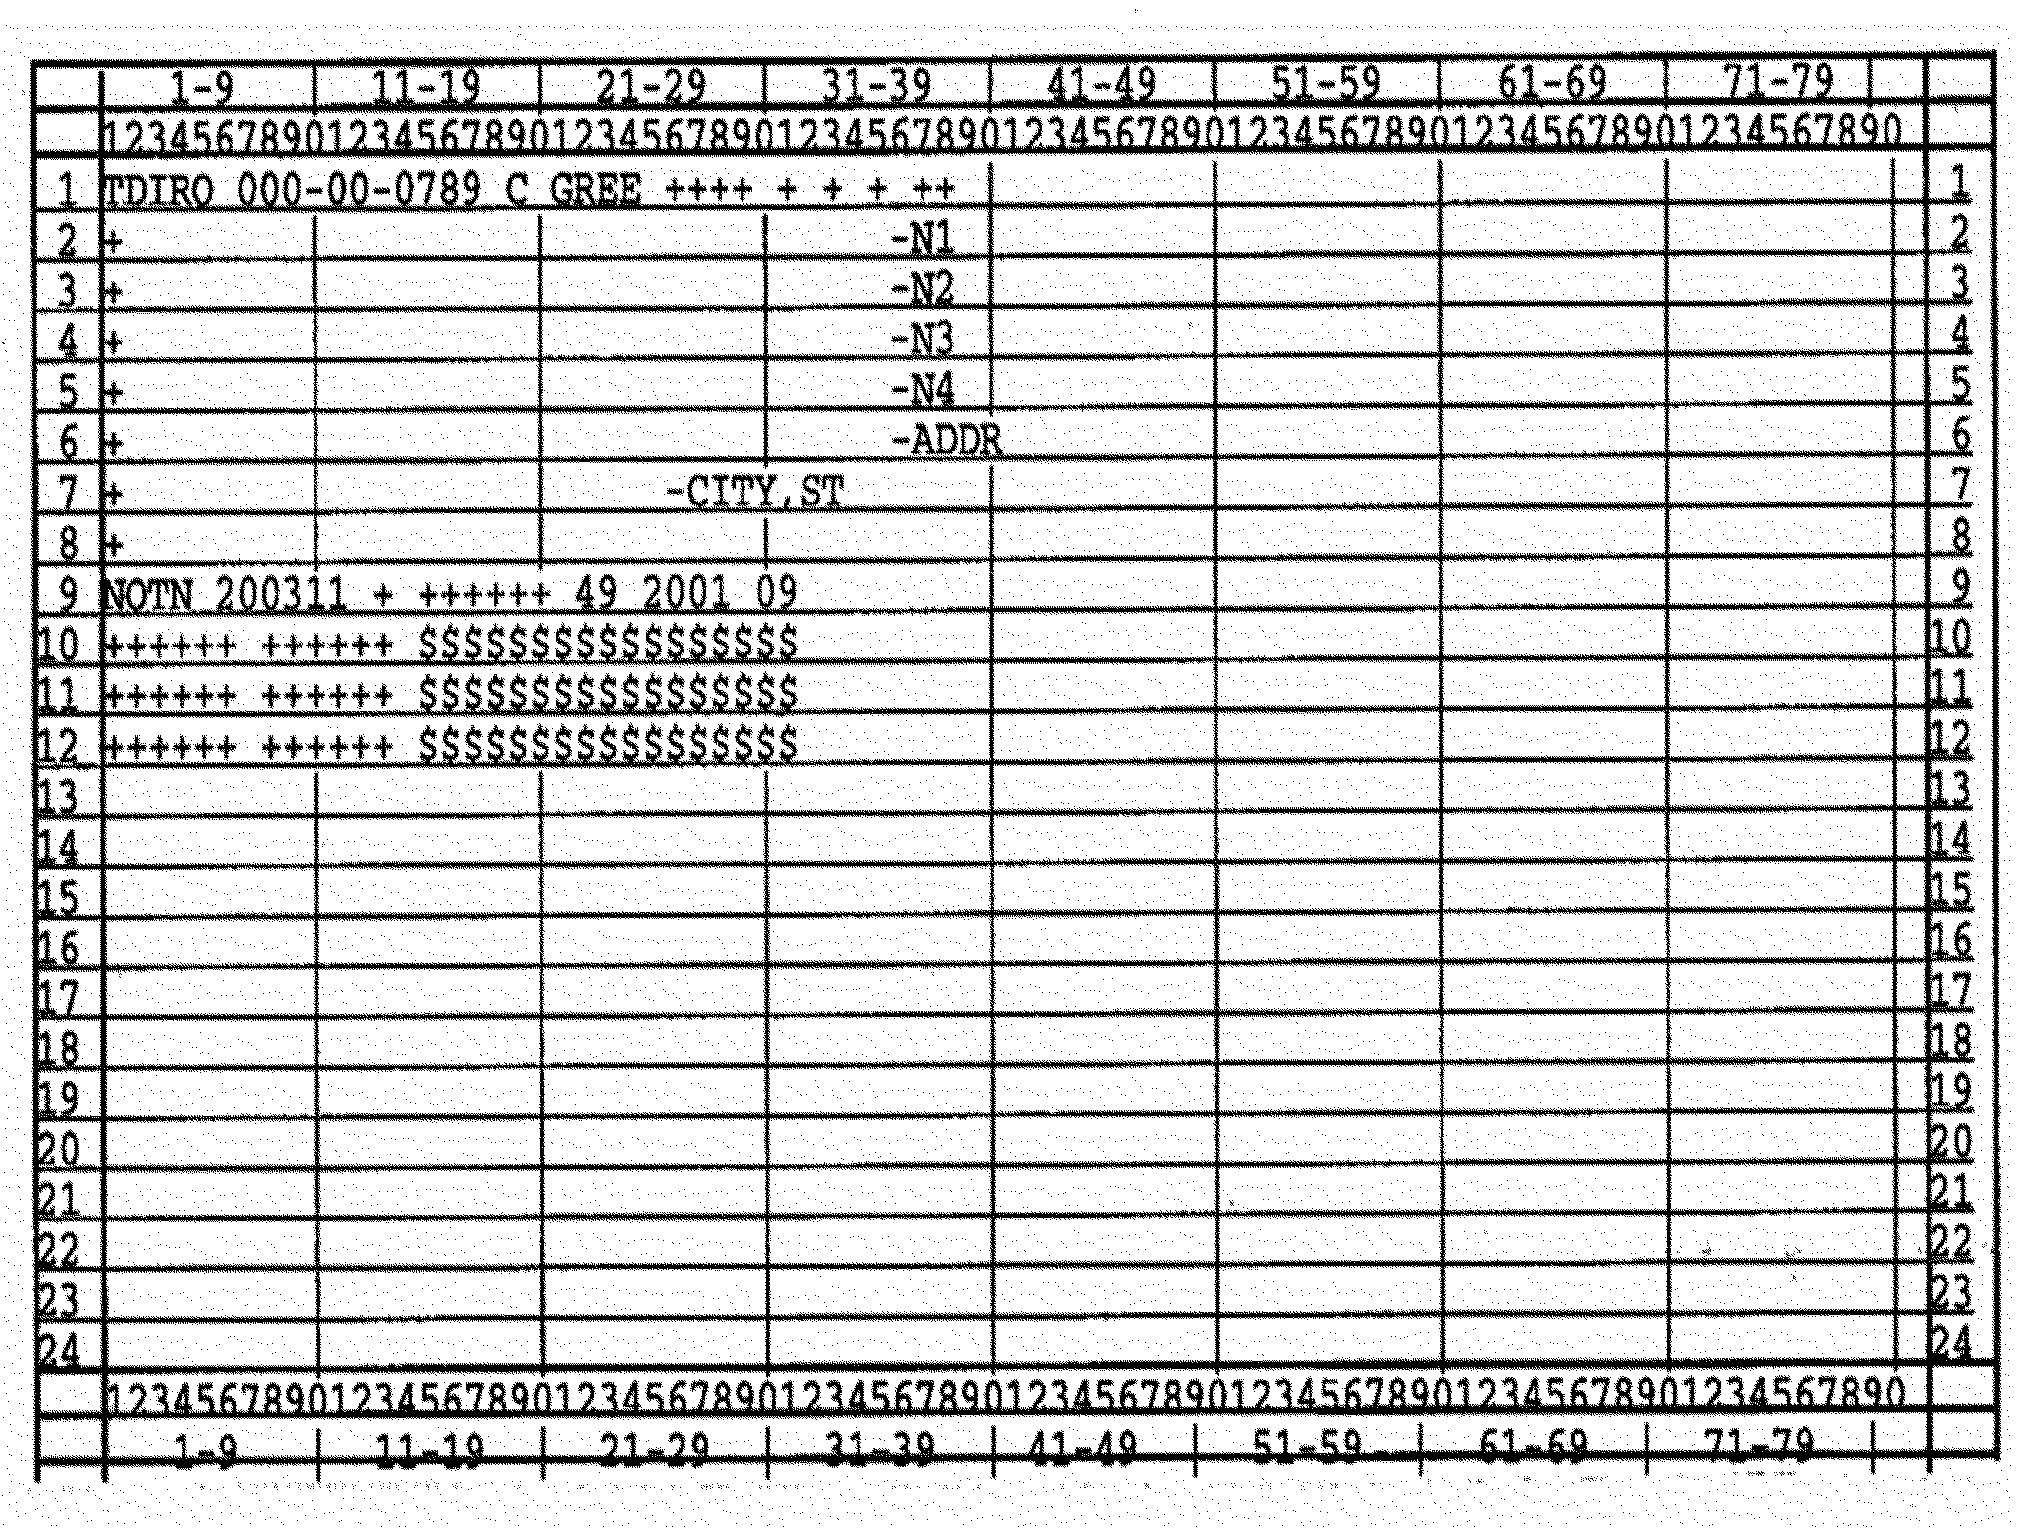 1-9 11-19 21-29 31-39 41-49 51-59 61-69 71-79
12345678901234567890123456789012345678901234567890123456789012345678901234567890
1 TDIRO 000-00-0789 C GREE ++++ + + + ++ 1
2 + -N1 2
3 + -N2 3
4 + -N3 4
5 + -N4 5
6 + -ADDR 6
7 + -CITY,ST 7
8 + 8
9 NOTN 200311 + ++++++ 49 2001 09 9
10 ++++++ ++++++ $$$$$$$$$$$$$$$$$ 10
11 ++++++ ++++++ $$$$$$$$$$$$$$$$$ 11
12 ++++++ ++++++ $$$$$$$$$$$$$$$$$ 12
13 13
14 14
15 15
16 16
17 17
18 18
19 19
20 20
21 21
22 22
23 23
24 24
12345678901234567890123456789012345678901234567890123456789012345678901234567890
1-9 11-19 21-29 31-39 41-49 51-59 61-69 71-79